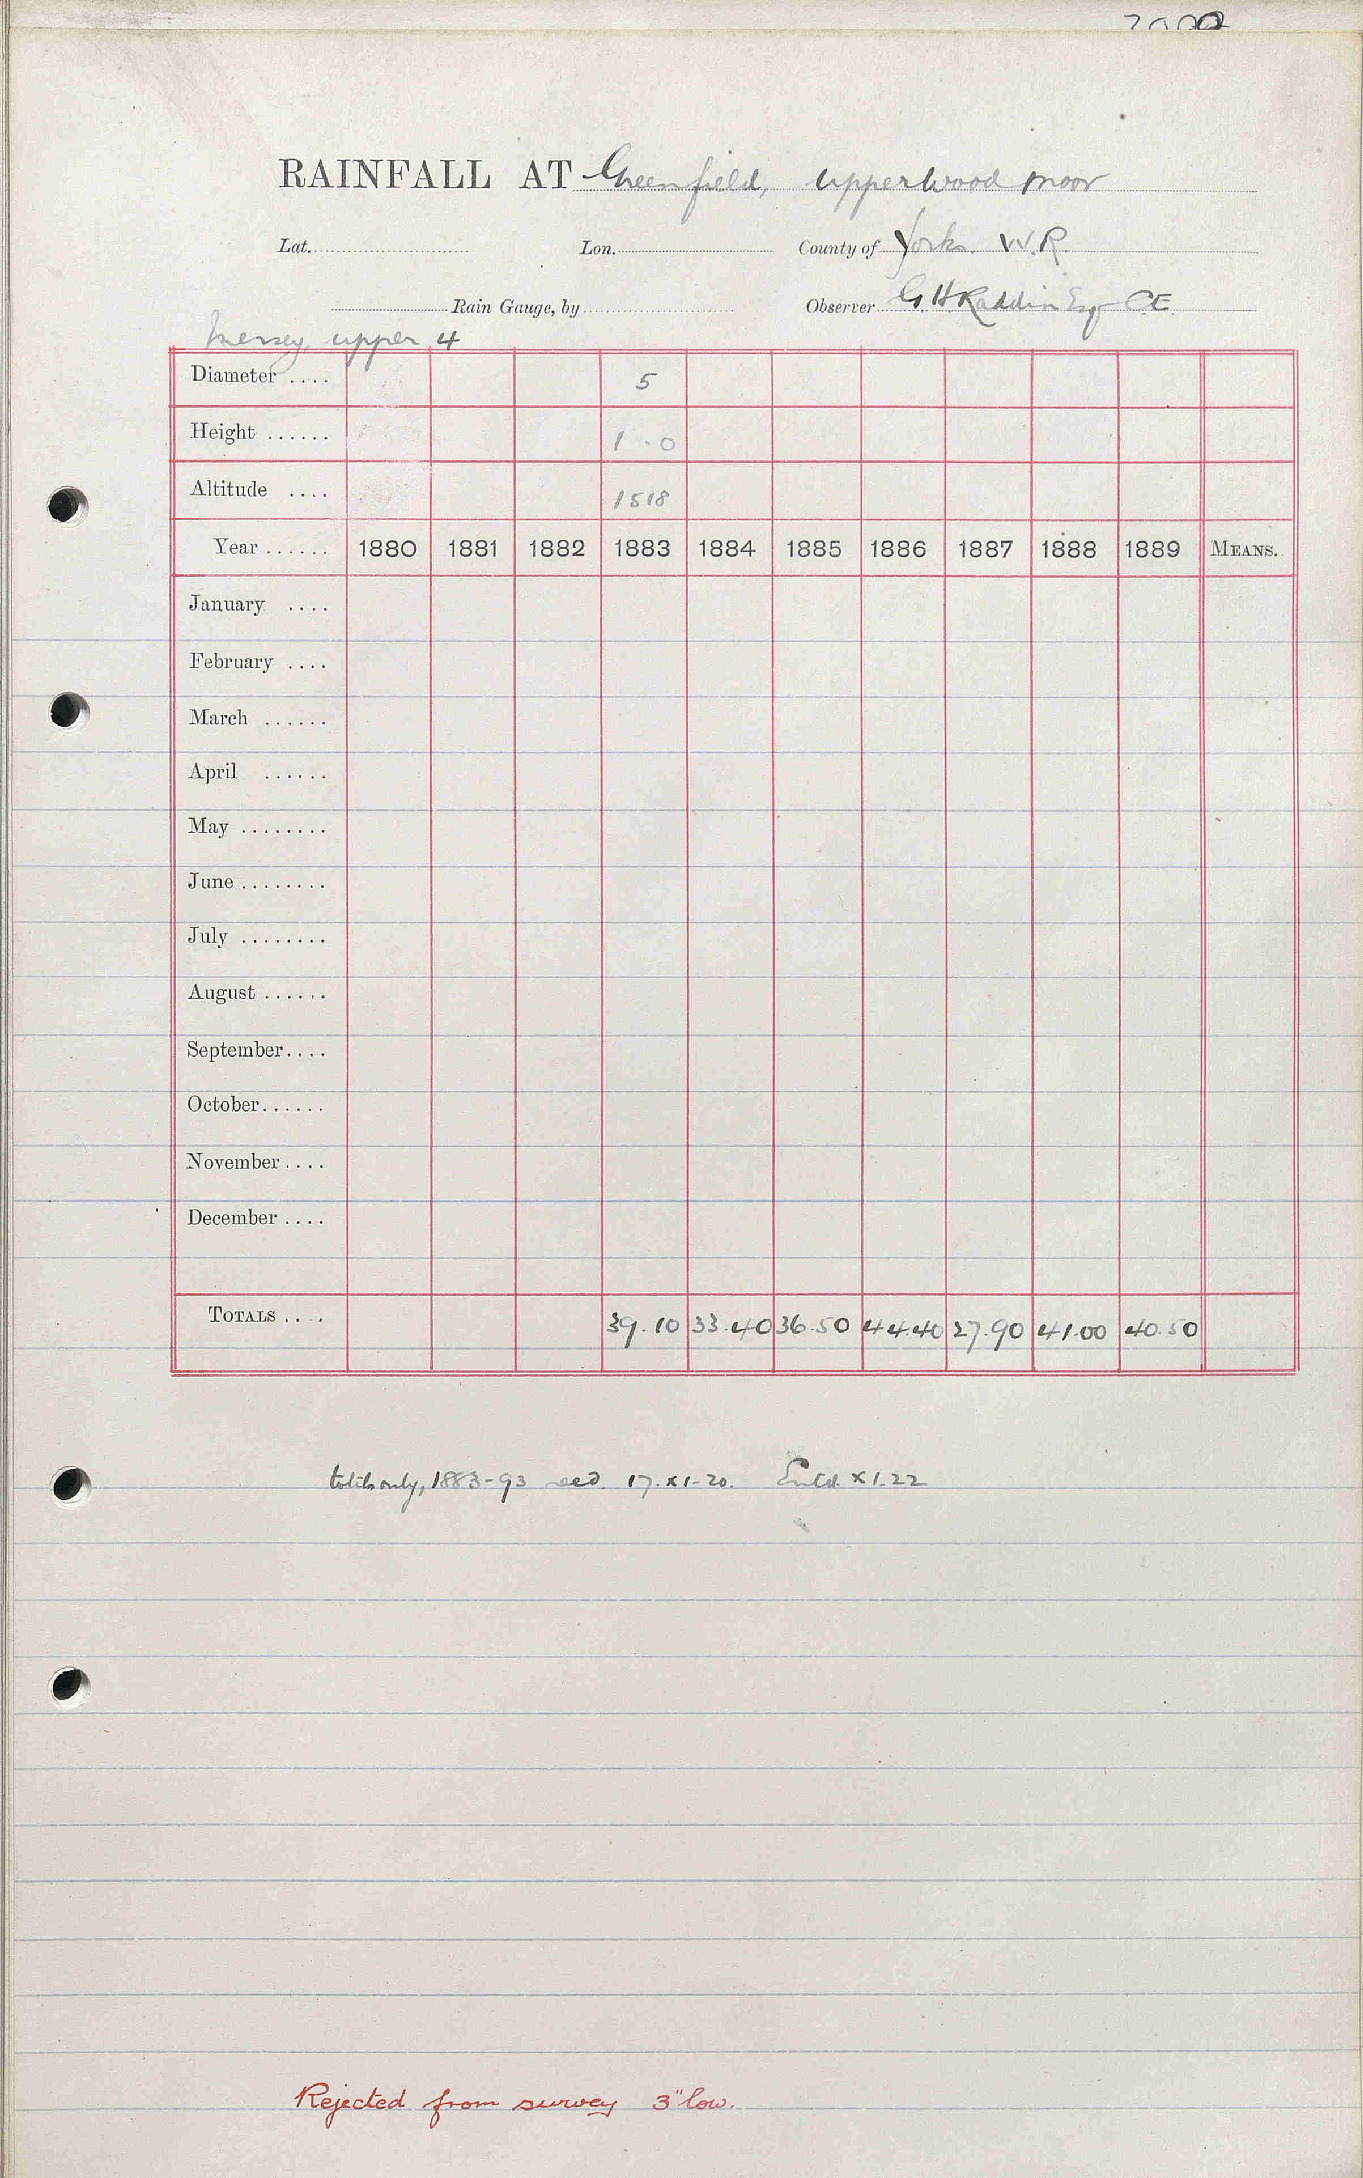 RAINFALL AT Greenfield, Upperwood Moor
Lat. Lon. County of Yorks. W.R
Rain Gauge, by Observer G H Raddin Esq CE
Mersey, upper 4
Diameter .... 5
Height ...... 1 - 0
Altitude .... 1518
Year ...... 1880 1881 1882 1883 1884 1885 1886 1887 1888 1889 MEANS.
January ....
February ....
March ......
April ......
May ........
June ........
July ........
August ......
September....
October......
November....
December....
TOTALS .... 39.10 33.40 36.50 44.40 27.90 41.00 40.50
totals only, 1883-93 recd. 17.x1-20. Entd. x1.22
Rejected from survey 3" low.